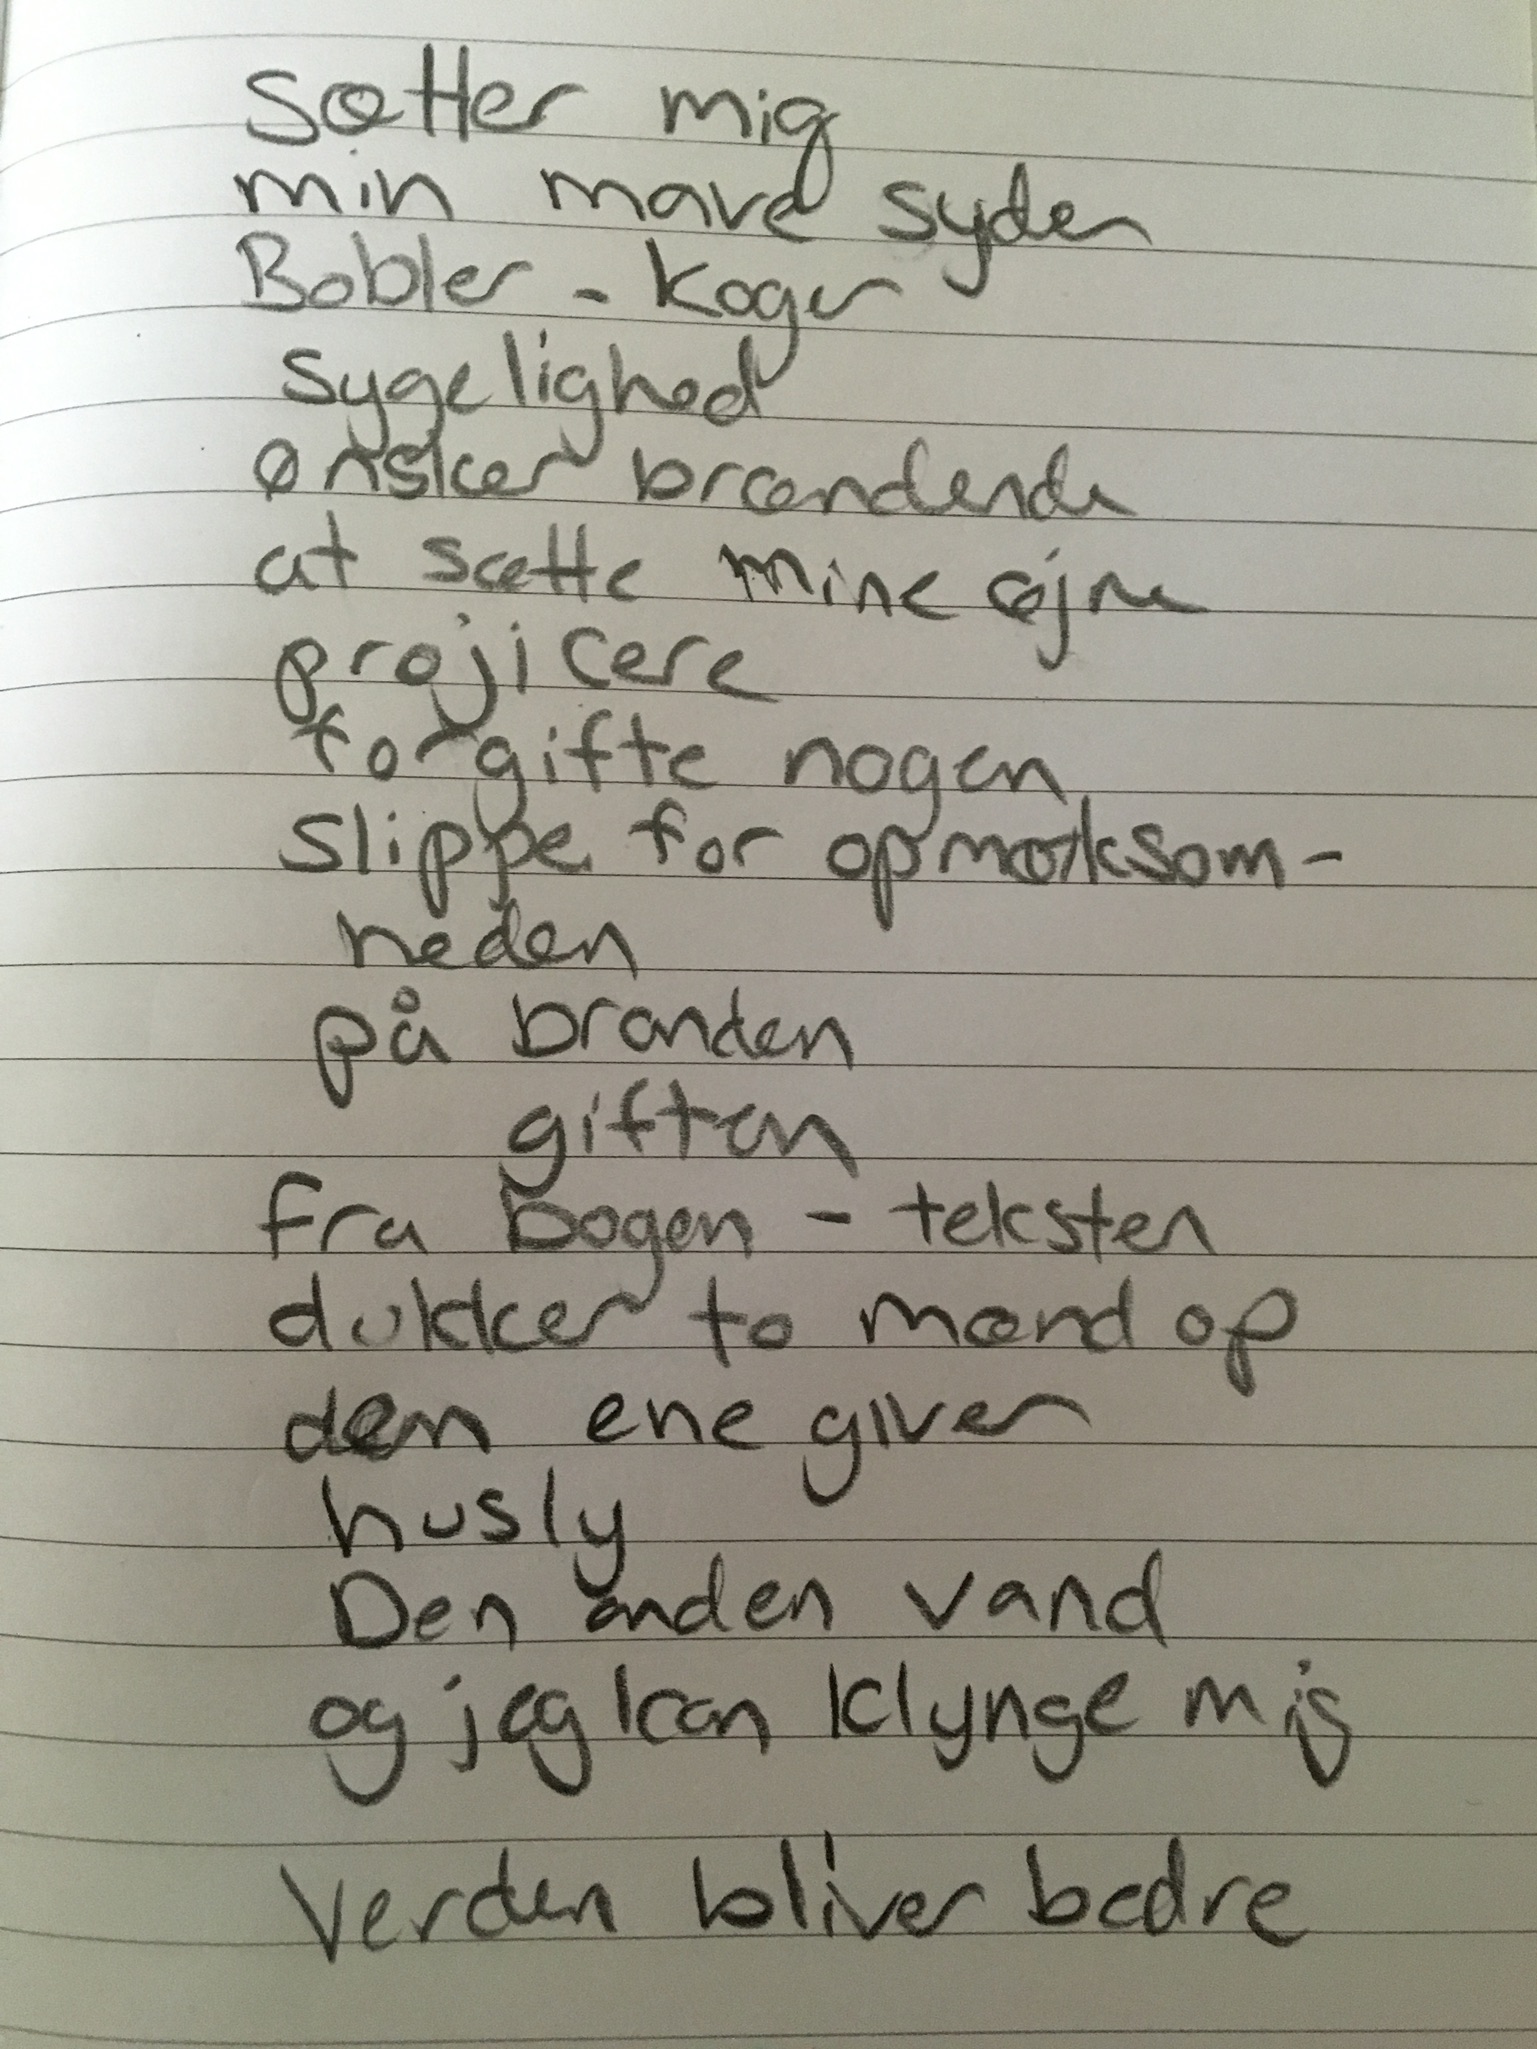 Sætter mig
min mave syder
Bobler - koger
sygelighed
ønsker brændende
at sætte mine øjne
projicere
forgifte nogen
slippe for opmærksom-
heden
på branden
giften
fra bogen - teksten
dukker to mænd op
den ene giver
husly
Den anden vand
og jeg kan klynge mig
Verden bliver bedre